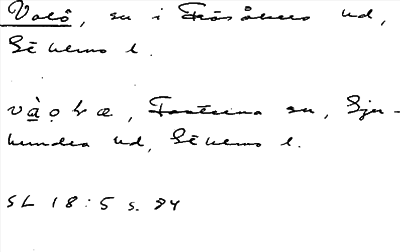 Valö, sn i Frösåkers hd,
Sthlms l.
vàọḷæ, Fasterna sn, Sju-
hundra hd, Sthlms l.
SL 18:5 s. 84